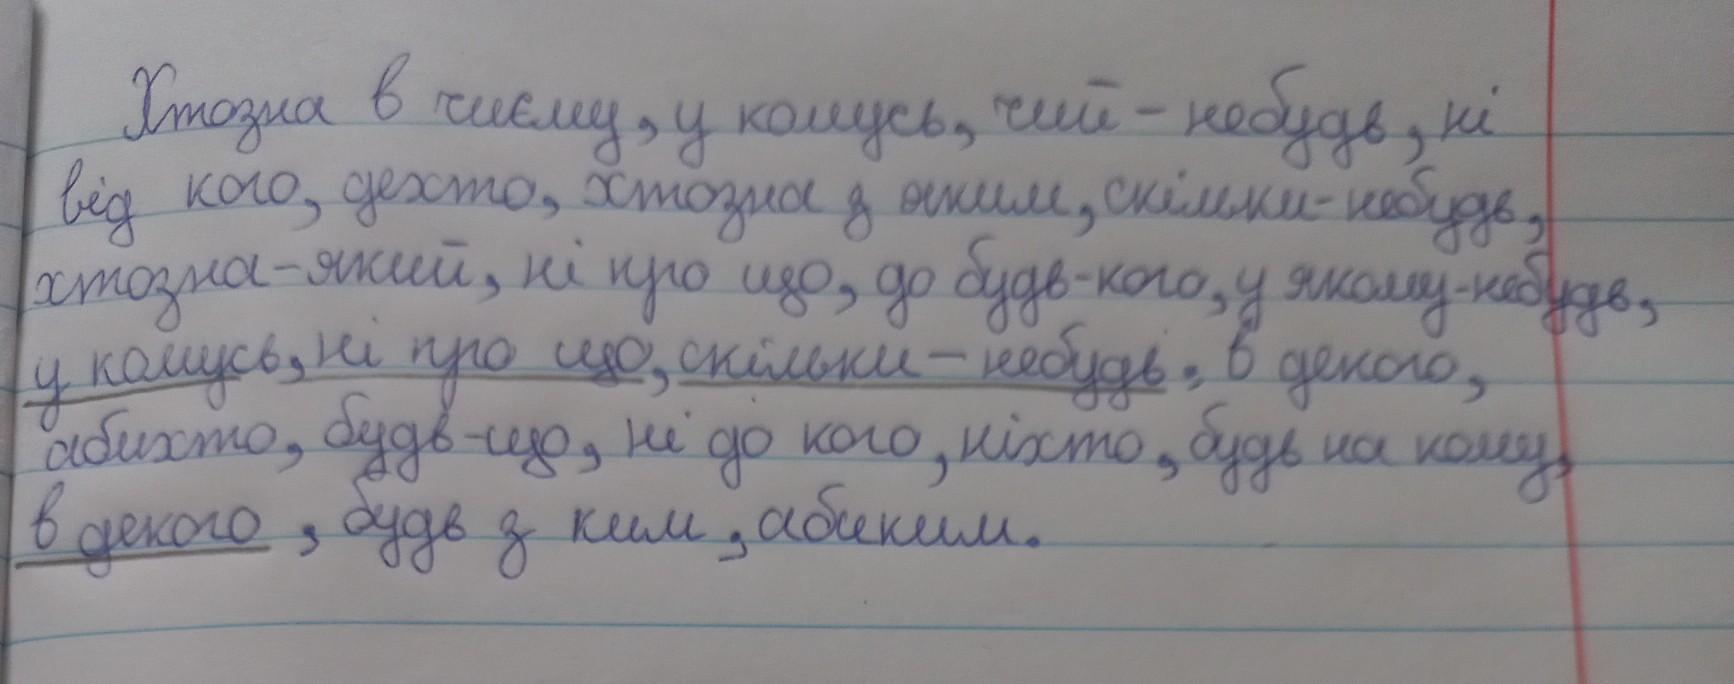 Хтозна в чиєму, у комусь, чий-небудь, ні
від кого, дехто, хтозна з яким, скільки-небудь,
хтозна-який, ні про що, до будь-кого, у якому-небудь,
у комусь, ні про що, скільки-небудь, в декого,
абихто, будь-що, ні до кого, ніхто, будь на кому,
в декого, будь з ким, абиким.